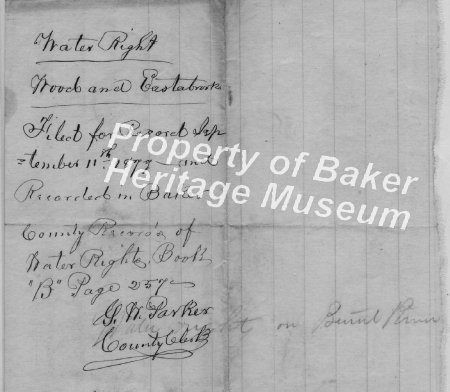 Water Right
Wood and Eastabrooks
Filed for Record Sep
tember 11th 1873 and
Recorded in Baker
County Records of
Water Rights, Book
"B" Page 257
G. W. Parker
County Clerk
on Burnt
Property of Baker
Heritage Museum